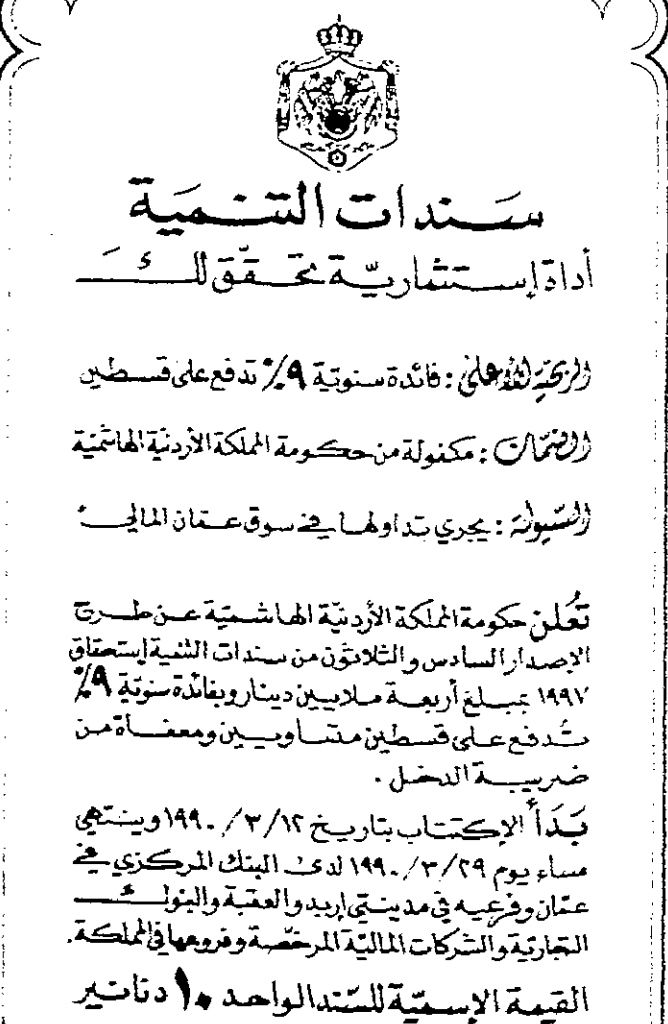 سندات التنمية
أداة إستثمارية تحقق لك
الربحية الأعلى : فائدة سنوية ٩٪ تدفع على قسطين
الضمان : مكفولة من حكومة المملكة الأردنية الهاشمية
السيولة : يجري تداولها في سوق عمان المالي
تعلن حكومة المملكة الأردنية الهاشمية عن طرح
الإصدار السادس والثلاثون من سندات التنمية إستحقاق
١٩٩٧ بمبلغ أربعة ملايين دينار وبفائدة سنوية ٩٪
تدفع على قسطين متساويين ومعفاة من
ضريبة الدخل .
بدأ الإكتتاب بتاريخ ١٩٩٠/٣/١٢ وينتهي
مساء يوم ١٩٩٠/٣/٢٩ لدى البنك المركزي في
عمان وفرعيه في مدينتي إربد والعقبة والبنوك
التجارية والشركات المالية المرخصة وفروعها في المملكة .
القيمة الإسمية للسند الواحد ١٠ دنانير